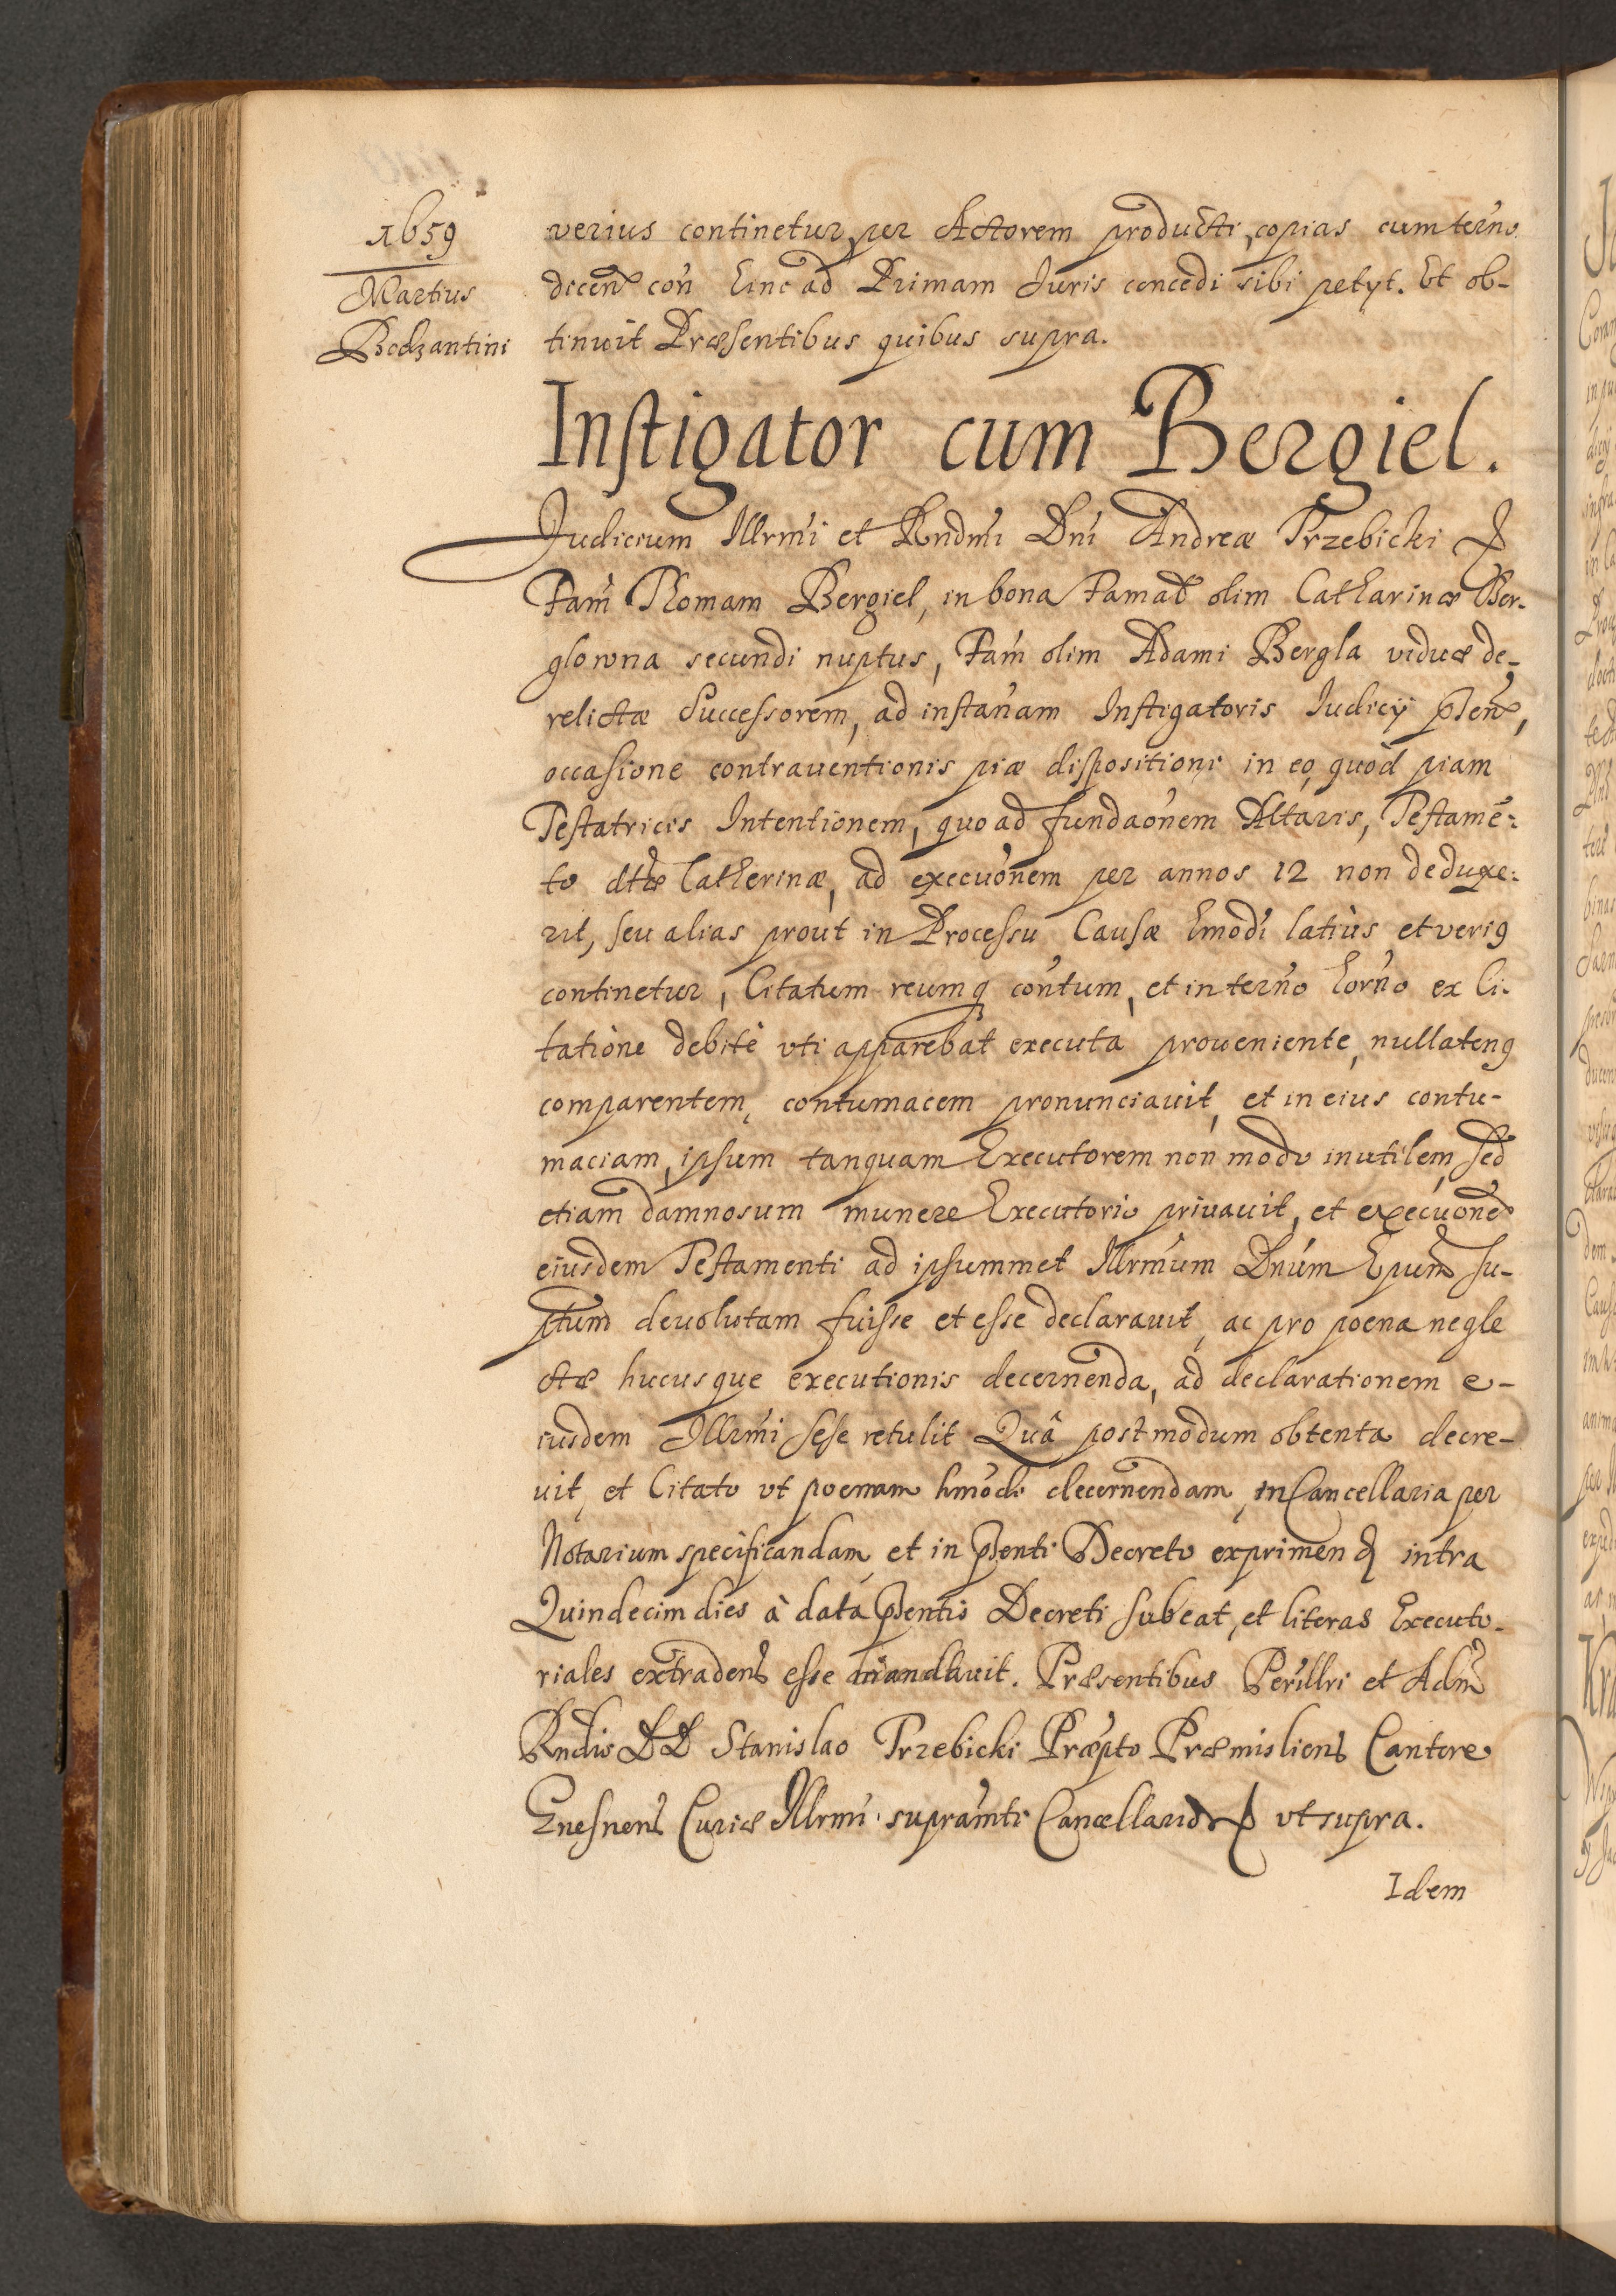 1659
Martius
Bodzantini
verius continetur, per Actorem producti, copias cum termo
decen con hinc ad Primam Iuris concedi sibi petyt. Et ob-
tinuit Præsentibus quibus supra.
Instigator cum Bergiel.
Judicium Illrmi et Rndmi Dni Andreæ Trzebicki
Fam Thomam Bergiel, in bona Famat olim Catharinæ Ber-
glowna secundi nuptus, Fam olim Adami Bergla viduæ de-
relictæ Successorem, ad instanam Instigatoris Iudicÿ pñten,
occasione contrauentionis piæ dispositioni in eo, quod piam
Testatricis Intentionem, quo ad fundaonem Altaris, Testamē-
to dtæ Catherinæ, ad execuonem per annos 12 non deduxe-
rit, seu alias prout in Processu Causæ hmodi latius et verig
continetur, Citatum reumq contum, et in termo horno ex Ci-
tatione debite vti apparebat executa proueniente, nullateng
comparentem, contumacem pronunciauit, et in eius contu-
maciam, ipsum tanquam Executorem non modo inutilem, sed
etiam damnosum munere Executorio priuauit, et execuone
eiusdem Testamenti ad ipsummet Illrmum Dnum Epum su-
ptum deuolutam fuisse et esse declarauit, ac pro poena negle
ctæ hucusque executionis decernenda, ad declarationem e-
iusdem Illrmi sese retulit Quâ postmodum obtenta decre-
uit, et Citato vt poenam hmodi decernendam, in Cancellaria per
Notarium specificandam, et in pñenti Decreto exprimen intra
Quindecim dies à data pñentis Decreti subeat, et literas Executo-
riales extradens esse mandauit. Præsentibus Perillri et Adm
Rndis DD Stanislao Trzebicki Præpto Præmisliens Cantore
Gnesnens Curiæ Illrmi supramti Cancellario vt supra.
Idem